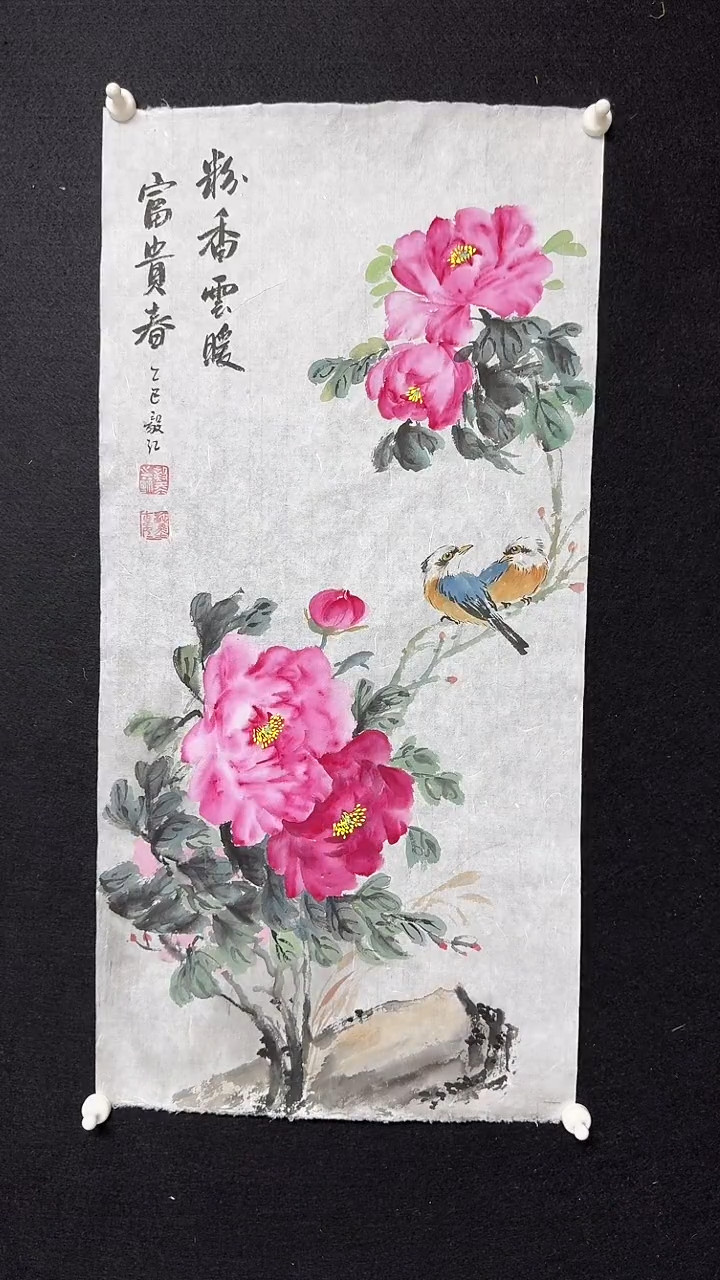 粉香雲暖
富貴春
乙巳毅江